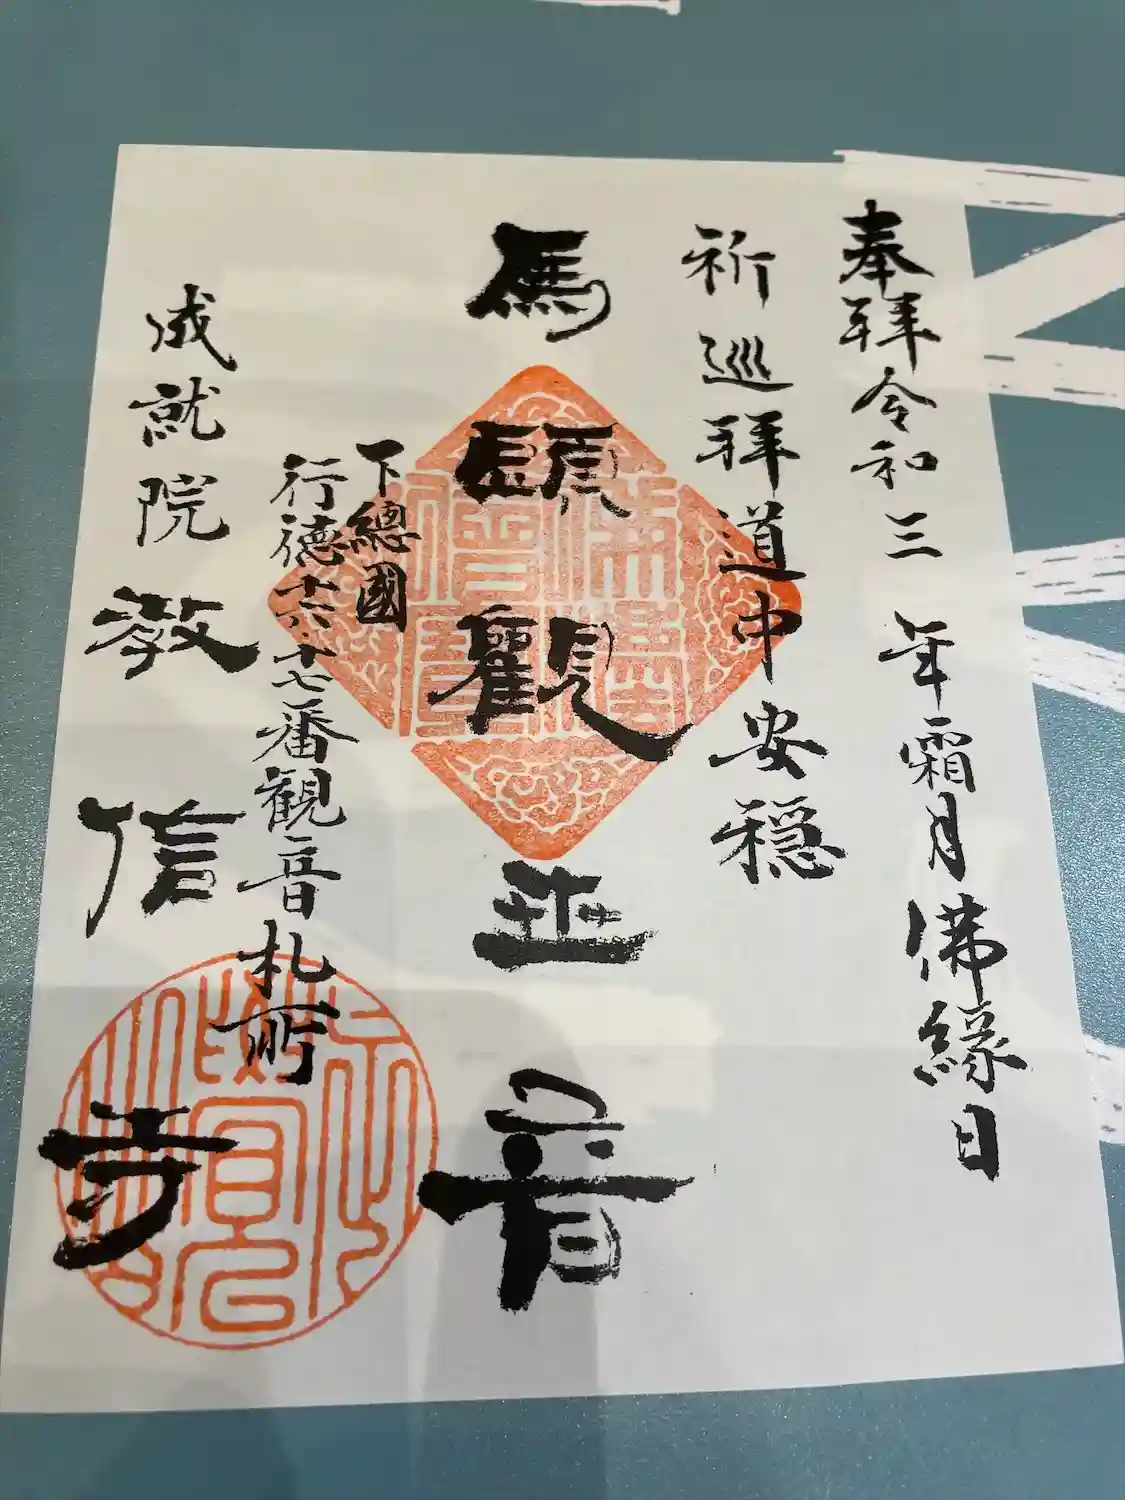 奉拜令和三年霜月佛縁日
祈巡拝道中安穏
馬頭觀世音
下總國
行徳十六・十七番観音札所
成就院教信寺